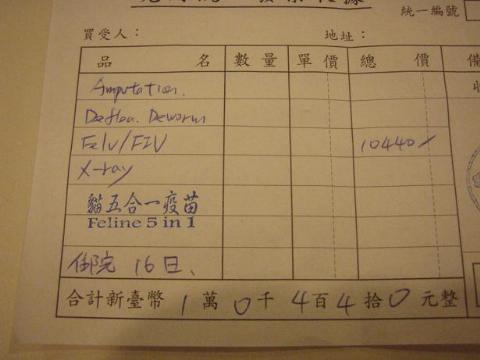 統一編號
買受人： 地址：
品名 數量 單價 總價 備
Amputation.
Deflea. Deworm
Felv/FIV 10440/
X-ray
貓五合一疫苗
Feline 5 in 1
住院 16日.
合計新臺幣 1 萬 0 千 4 百 4 拾 0 元整